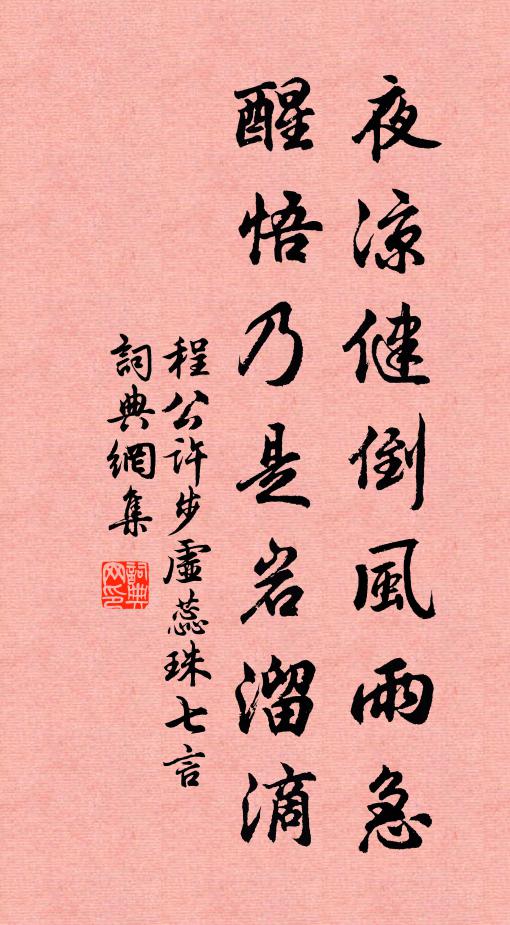 夜涼健倒風雨急
醒悟乃是岩溜滴
程公許步虛蕊珠七言
詞典網集
詞典网印